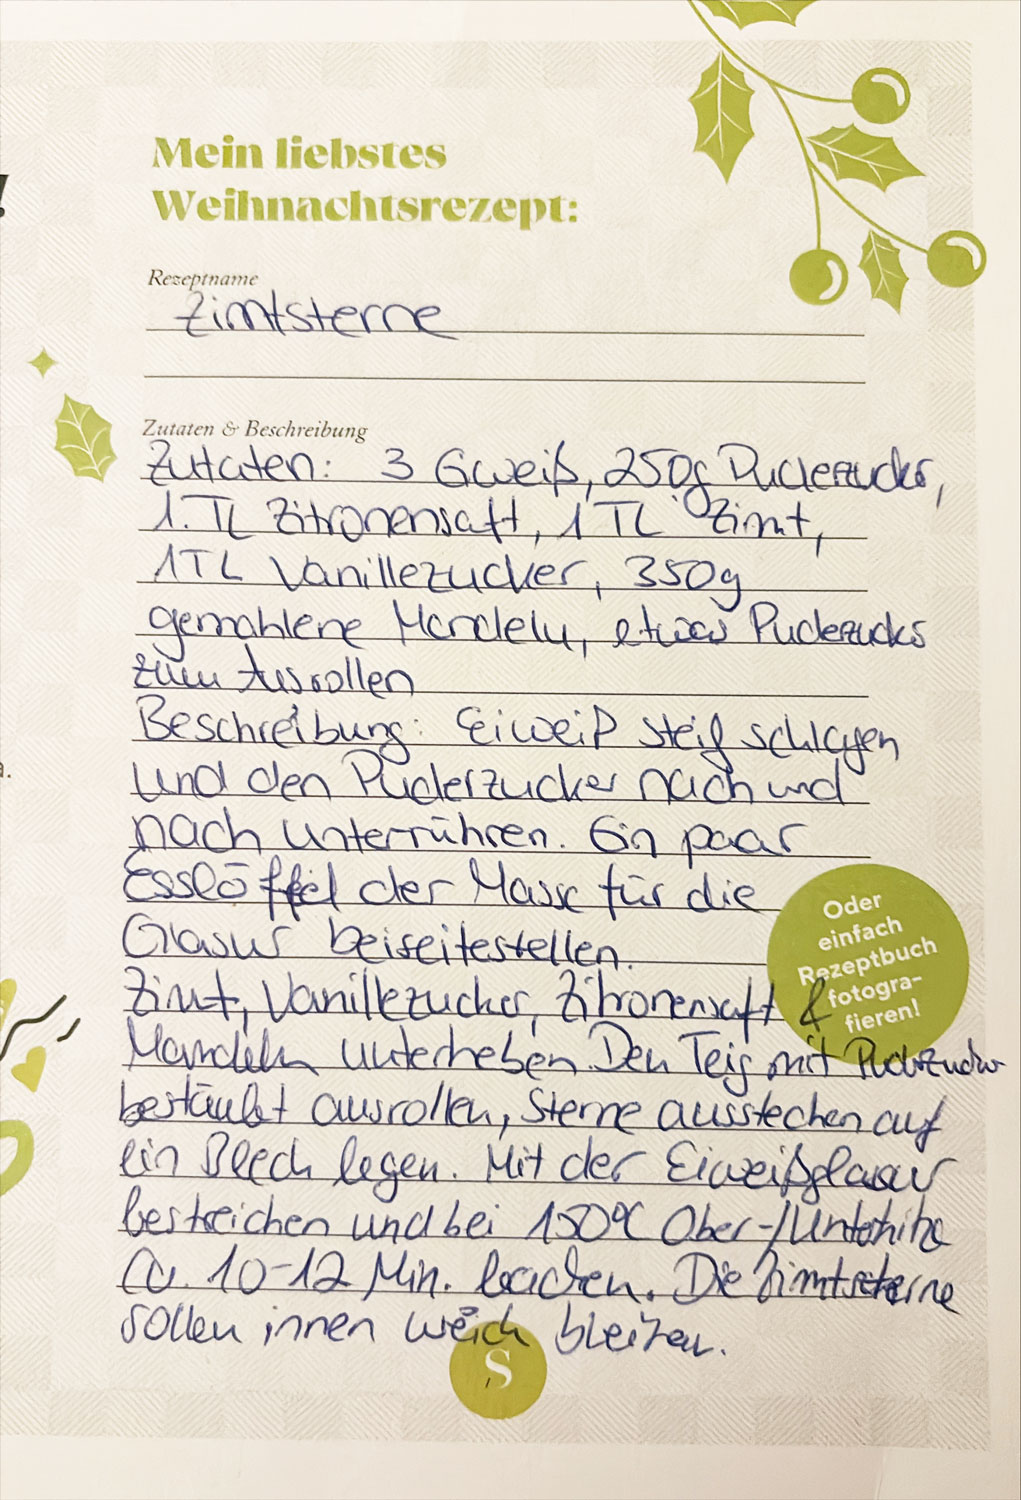 !
Mein liebstes
Weihnachtsrezept:
Rezeptname
Zimtsterne
Zutaten & Beschreibung
Zutaten: 3 Eiweiß, 250g Puderzucker,
1. TL Zitronensaft, 1 TL Zimt,
1TL Vanillezucker, 350g
gemahlene Mandeln, etwas Puderzucker
zum Ausrollen
Beschreibung: Eiweiß steif schlagen
und den Puderzucker nach und
nach unterrühren. Ein paar
Esslöffel der Masse für die
Glasur beiseitestellen.
Zimt, Vanillezucker, Zitronensaft &
Mandeln unterheben. Den Teig mit Puderzucker
bestäubt ausrollen, Sterne ausstechen auf
ein Blech legen. Mit der Eiweißglasur
bestreichen und bei 150°C Ober-/Unterhitze
Ca. 10-12 Min. backen. Die Zimtsterne
sollen innen weich bleiben.
Oder
einfach
Rezeptbuch
fotogra-
fieren!
a.
S